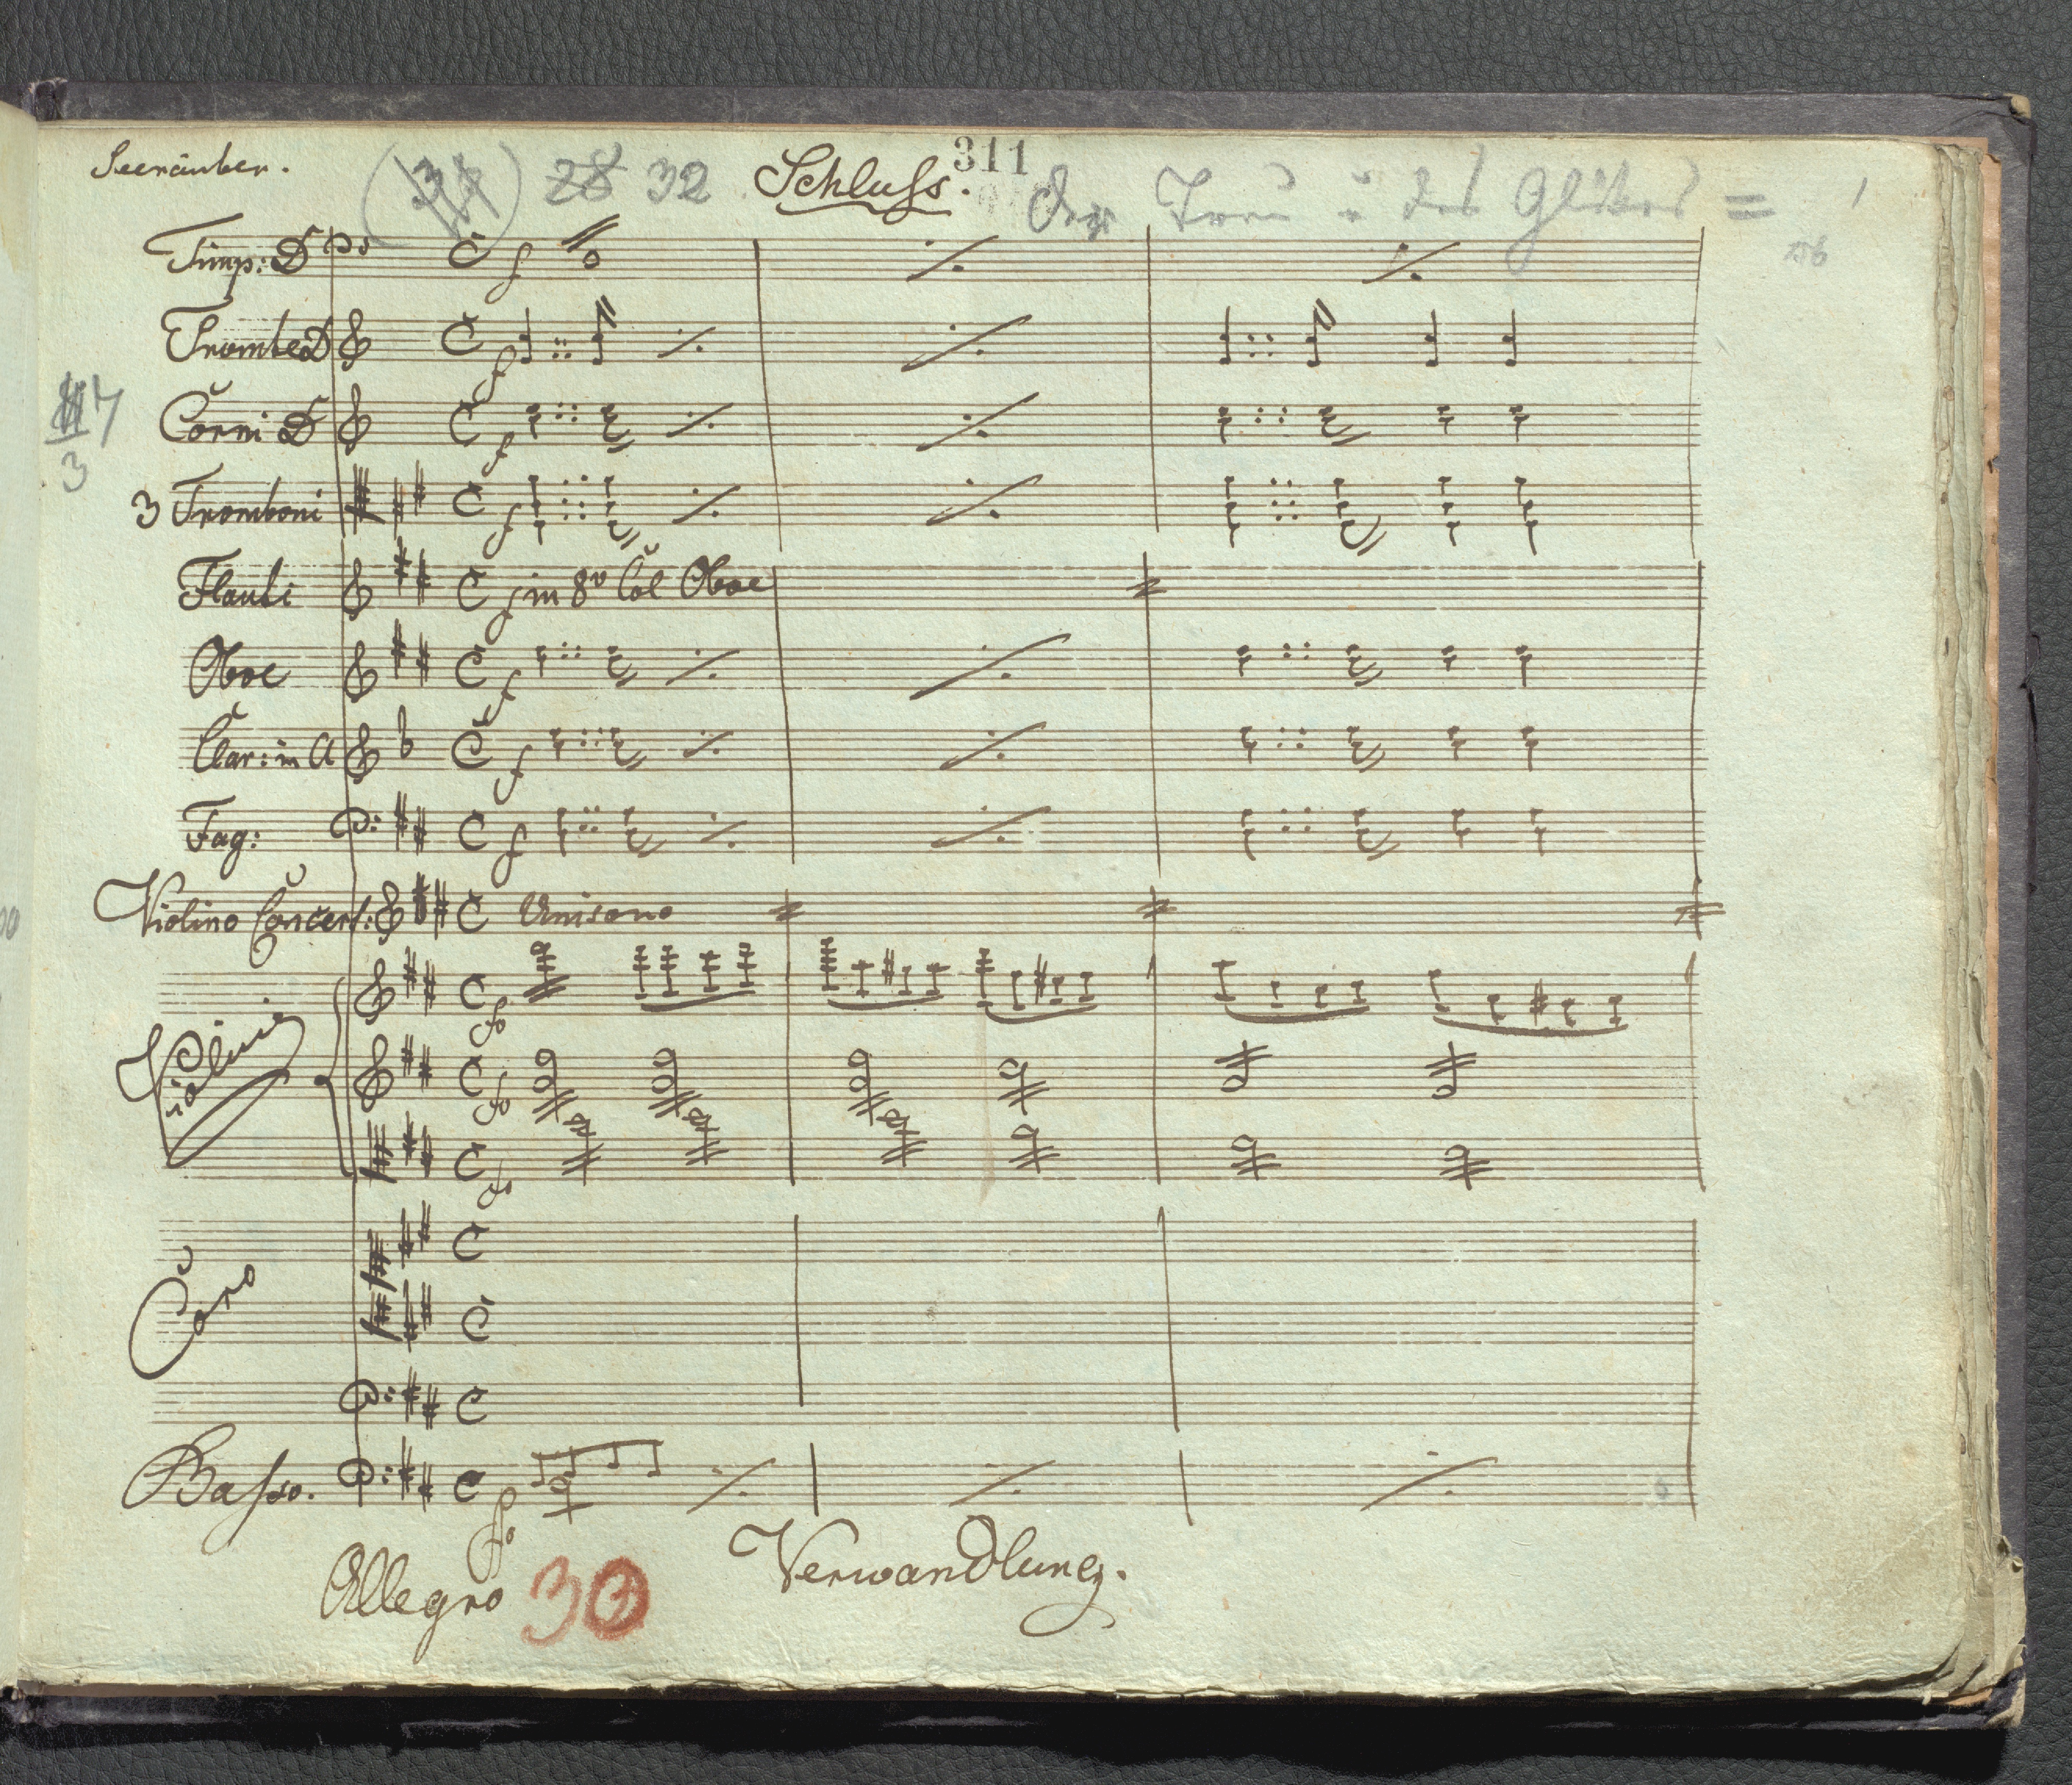 Seeräuber.
28 32 Schluss. 311
Der Treu u des Glükes =
Timp: D
Trombe D
Corni D
3
3 Tromboni
Flauti in 8v Col Oboe
Oboe
Clar: in A
Fag:
Violino Concert: Unisono
Violini
Coro
Basso.
Allegro 30 Verwandlung.